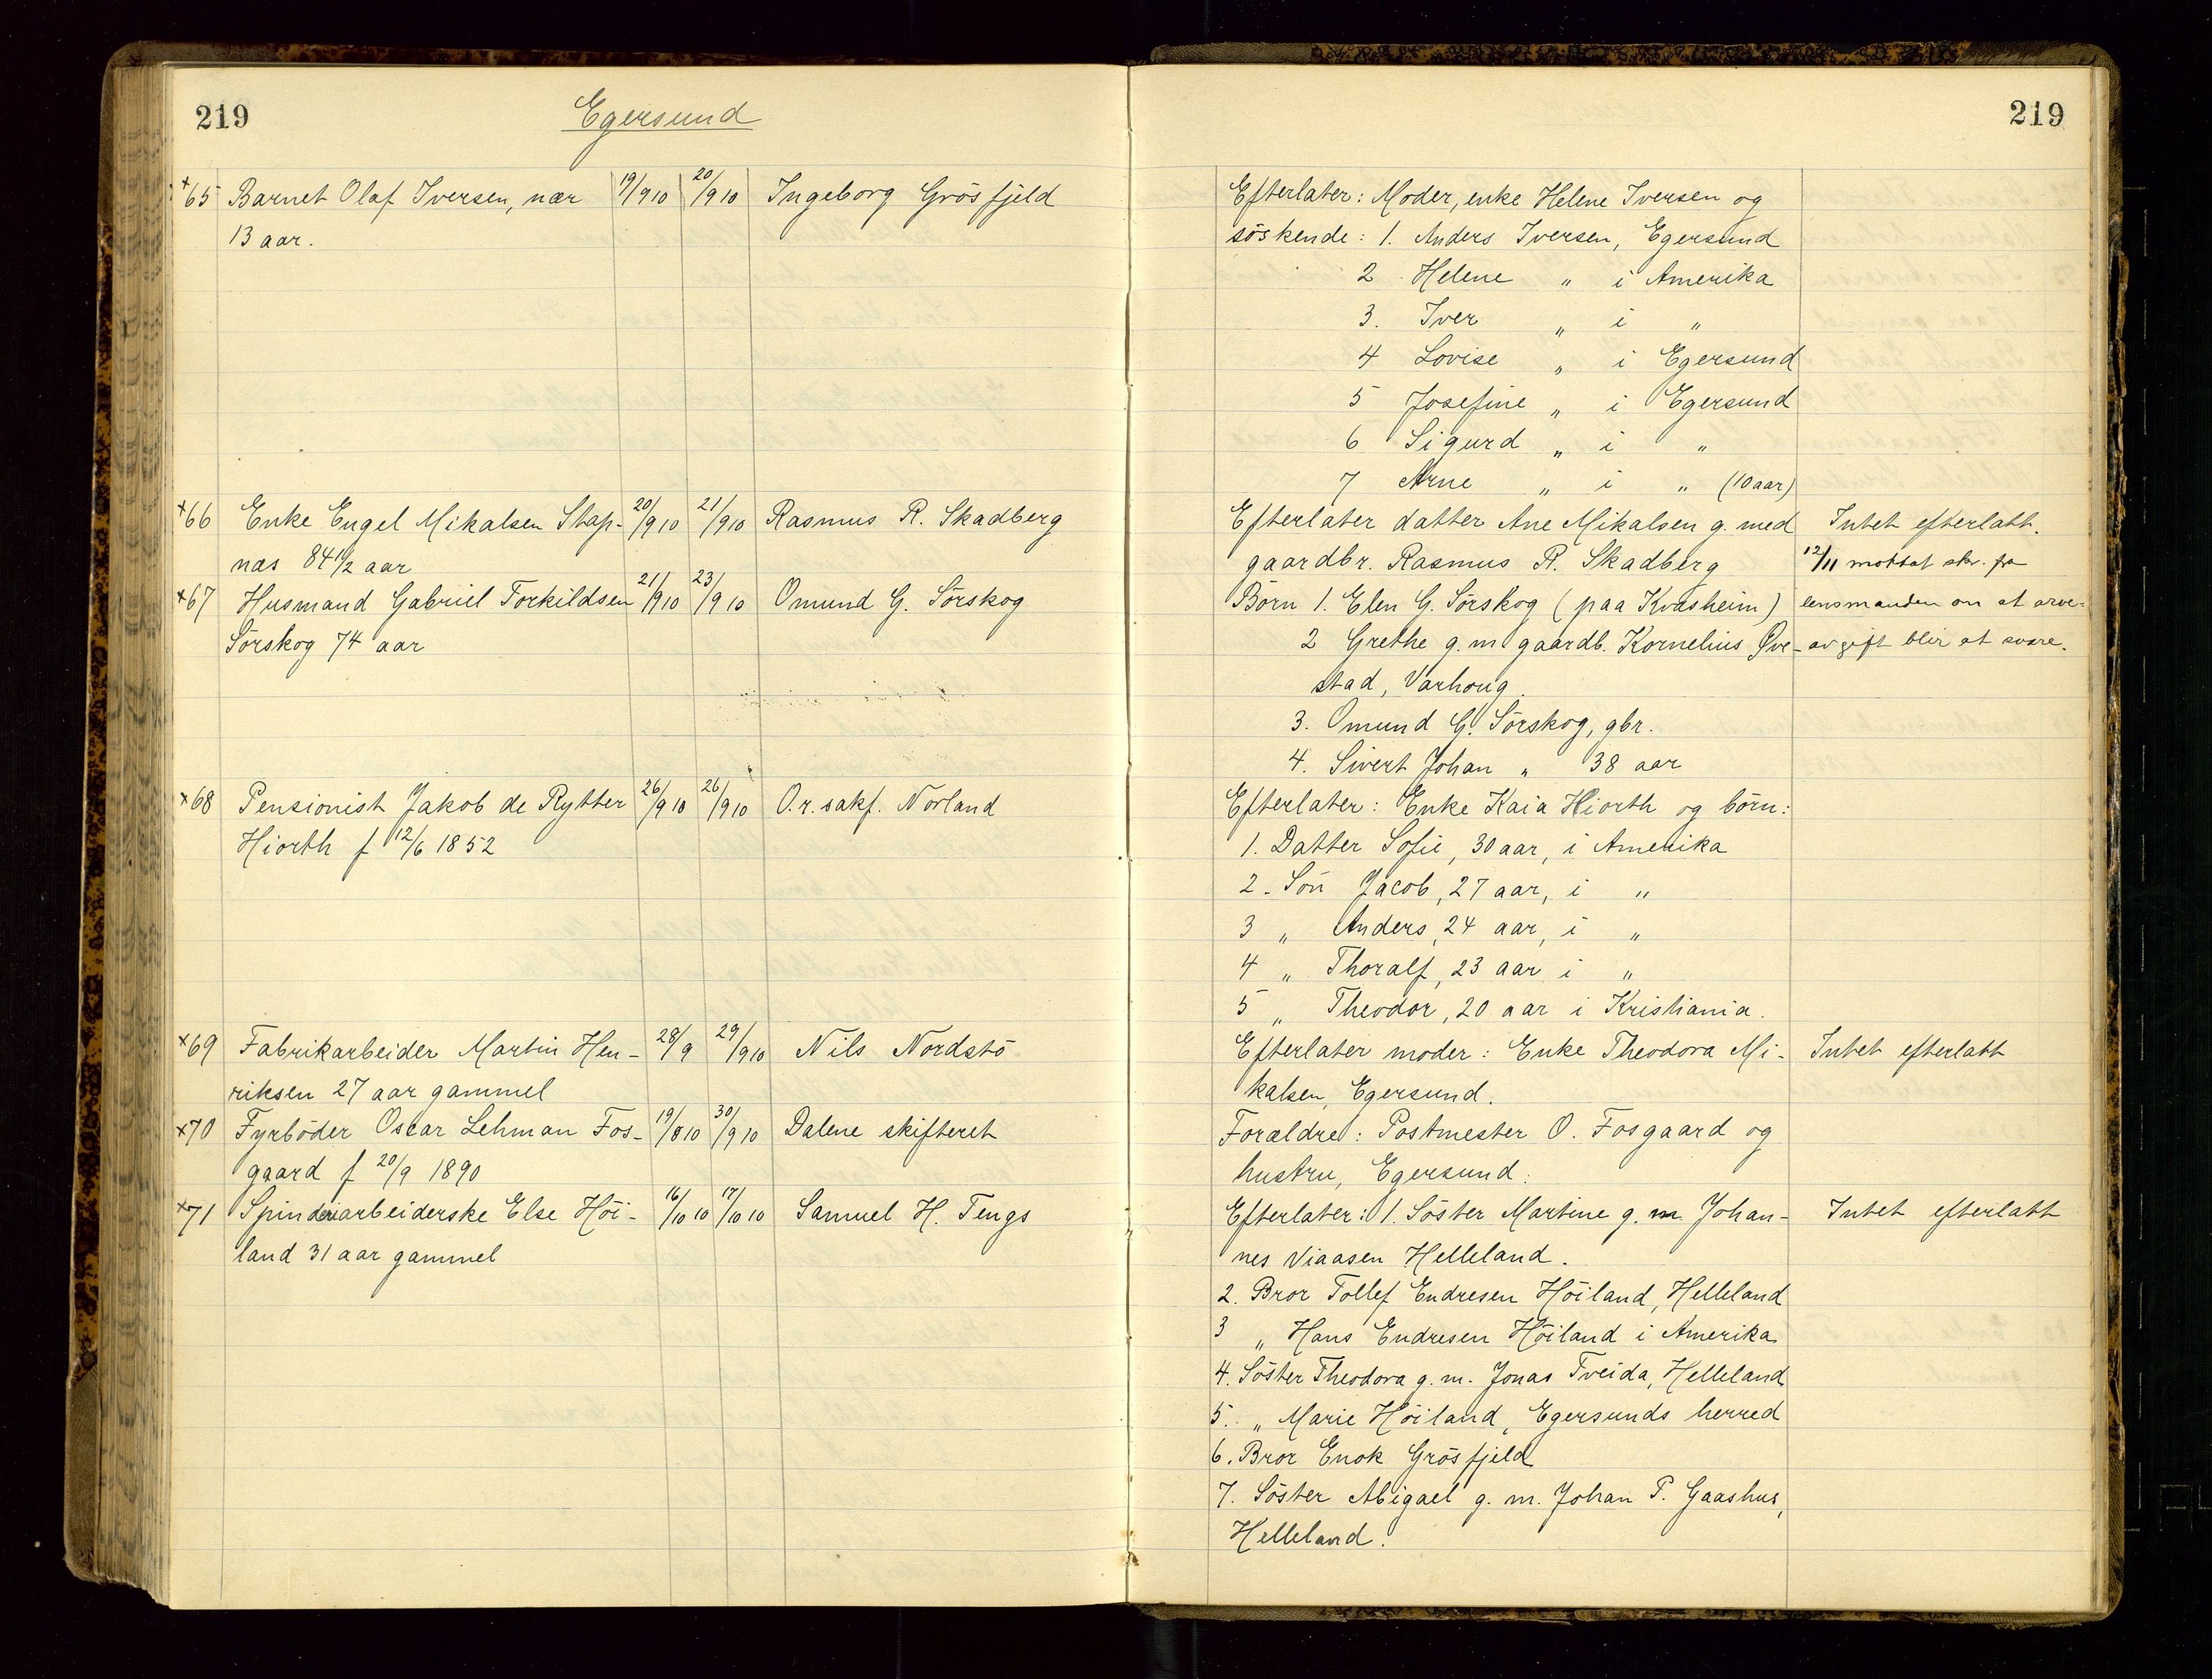 219
Egersund
×65 Barnet Olaf Iversen, nær 19/9 10 20/9 10 Ingeborg Grösfjeld
13 aar.
×66 Enke Engel Mikalsen Stap- 20/9 10 21/9 10 Rasmus R. Skadberg
næs 84 1/2 aar
×67 Husmand Gabriel Torkildsen 21/9 10 23/9 10 Omund G. Sörskog
Sörskog 74 aar
×68 Pensionist Jakob de Rytter 26/9 10 26/9 10 O.r. sakf. Norland
Hiorth f 12/6 1852
×69 Fabrikarbeider Martin Hen- 28/9 29/9 10 Nils Nordstö
riksen 27 aar gammel
×70 Fyrböder Oscar Lehman Fos- 19/8 10 30/9 10 Dalene skifteret
gaard f 20/9 1890
×71 Spinderiarbeiderske Else Höi- 16/10 10 17/10 10 Samuel H. Tengs
land 31 aar gammel
219
Efterlater: Moder, enke Helene Iversen og
söskende: 1. Anders Iversen, Egersund
2 Helene " i Amerika
3. Iver " i "
4 Lovise " i Egersund
5 Josefine " i Egersund
6 Sigurd " i "
7 Arne " i " (10 aar)
Efterlater datter Ane Mikalsen g. med Intet efterlatt.
gaardbr. Rasmus R. Skadberg 12/11 mottat skr. fra
Börn 1. Elen G. Sörskog (paa Kvasheim) lensmanden om at arve-
2 Grethe g. m gaardb. Kornelius Øve- avgift blir at svare.
stad, Varhoug.
3. Omund G. Sörskog, gbr.
4. Sivert Johan " 38 aar
Efterlater: Enke Kaia Hiorth og börn:
1. Datter Sofie, 30 aar, i Amerika
2. Sön Jacob, 27 aar, i "
3 " Anders, 24 aar, i "
4 " Thoralf, 23 aar i "
5 " Theodor, 20 aar i Kristiania.
Efterlater moder: Enke Theodora Mi- Intet efterlatt
kalsen, Egersund.
Forældre: Postmester O. Fosgaard og
hustru, Egersund.
Efterlater: 1. Söster Martine g. m Johan- Intet efterlatt
nes Viaasen Helleland.
2. Bror Tollef Endresen Höiland, Helleland
3 " Hans Endresen Höiland i Amerika
4. Söster Theodora g. m. Jonas Tveida, Helleland
5. " Marie Höiland, Egersunds herred
6. Bror Enok Grösfjeld
7. Söster Abigael g. m. Johan P. Gaashus,
Helleland.